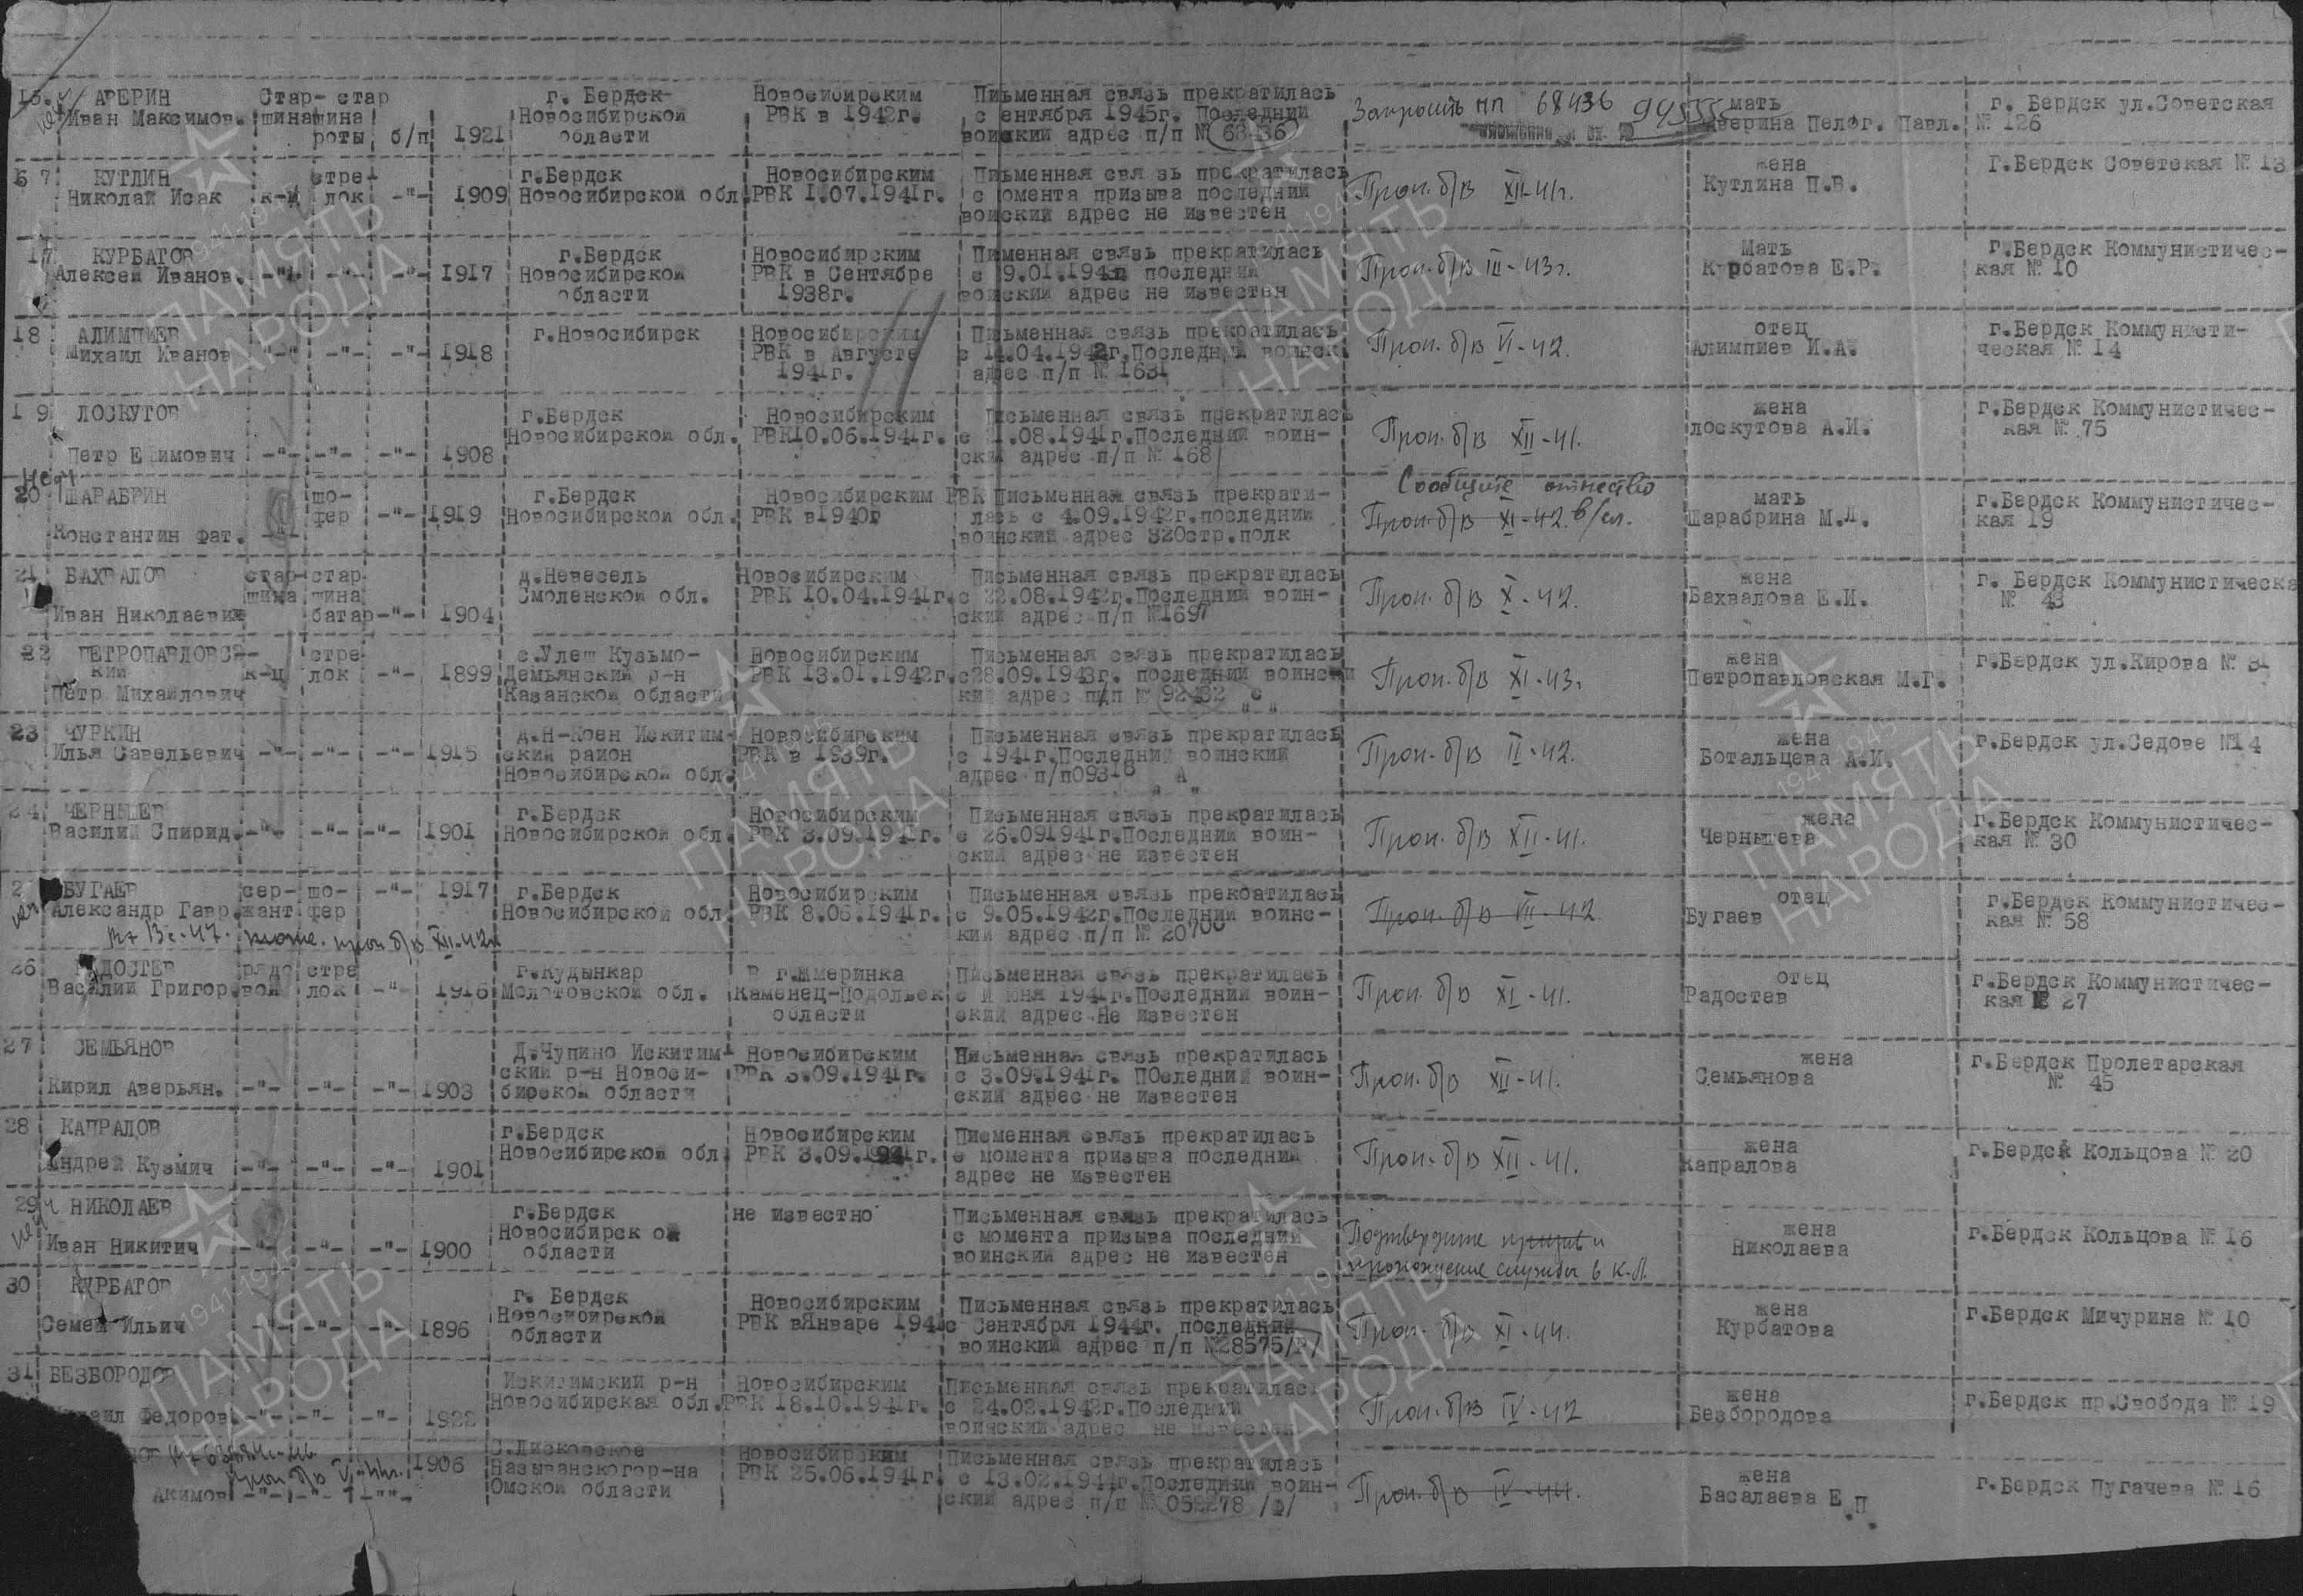 15. АВЕРИН Стар- стар г. Бердск Новосибирским Письменная связь прекратилась мать г. Бердск ул.Советская
Иван Максимов. шина шина Новосибирской РВК в 1942г. с ентября 1945г. Последний Запросить пп 68436 94555 Аверина Пелог. Павл. № 126
роты б/п 1921 области воиский адрес п/п № 68436
КУТЛИН стре- г.Бердск Новосибирским Письменная свя зь прекратилась жена Г.Бердск Советская № 13
Николай Исак к-ц лок -"- 1909 Новосибирской обл. РВК 1.07.1941г. с омента призыва последний Проп. б/в XII-41г. Кутлина П.В.
воиский адрес не известен
17 КУРБАТОВ г.Бердск Новосибирским Пименная связь прекратилась Мать г.Бердск Коммунистичес-
Алексей Иванов. -"- -"- -"- 1917 Новосибирской РВК в Сентябре последний Проп. б/в III-43г. Курбатова Е.Р. кая № 10
области 1938г. воиский адрес не известен
18 АЛИМПИЕВ г.Новосибирск Новосибирским Письменная связь прекратилась отец г.Бердск Коммунисти-
Михаил Иванов -"- -"- -"- 1918 РВК в Августе с 14.04.1942г.Последний воинск Проп. б/в VI-42. Алимпиев И.А. ческая № 14
1941г. адрес п/п № 1631
19 ЛОСКУТОВ г.Бердск Новосибирским Письменная связь прекратилась жена г.Бердск Коммунистичес-
Новосибирской обл. РВК10.06.1941г. с 21.08.1941г.Последний воин- Проп. б/в XII-41. Лоскутова А.И. кая № 75
Петр Ефимович -"- -"- -"- 1908 ский адрес п/п № 168
20 ШАРАБРИН шо- г.Бердск Новосибирским РВК Письменная связь прекрати- Сообщите отчество мать г.Бердск Коммунистичес-
фер -"- 1919 Новосибирской обл. РВК в1940г лась с 4.09.1942г.последний Проп. б/в XI-42. в/сл. Шарабрина М.Л. кая 19
Константин Фат. воинский адрес 320стр.полк
21 БАХВАЛОВ стар- стар д.Невесель Новосибирским Письменная связь прекратилась жена г. Бердск Коммунистическа
шина шина Смоленской обл. РВК 10.04.1941г. с 22.08.1942г.Последний воин- Проп. б/в X-42. Бахвалова Е.И. № 43
Иван Николаевич батар -"- 1904 ский адрес п/п №1697
22 ПЕТРОПАВЛОВС- стре с.Улеш Кузьмо- Новосибирским Письменная связь прекратилась жена г.Бердск ул.Кирова № 31
кий к-ц лок -"- 1899 Демьянский р-н РВК 13.01.1942г. с28.09.1943г. последний воинский Проп. б/в XI-43г. Петропавловская М.Г.
Петр Михаилович Казанской области кий адрес п/п № 92482 "С"
23 ЧУРКИН д.Н-Коен Искитим- Новосибирским Письменная связь прекратилась жена г.Бердск ул.Седове №14
Илья Савельевич -"- -"- -"- 1915 ский район РВК в 1939г. с 1941г.Последний воинский Проп. б/в II-42. Ботальцева А.И.
Новосибирской обл. адрес п/п09318 "А"
24 ЧЕРНЫШЕВ г.Бердск Новосибирским Письменная связь прекратилась жена г.Бердск Коммунистичес-
Василий Спирид. -"- -"- -"- 1901 Новосибирской обл. РВК 3.09.1941г. с 26.091941г.Последний воин- Проп. б/в XII-41. Чернышева кая № 30
ский адрес не известен
БУГАЕВ сер- шо- -"- 1917 г.Бердск Новосибирским Письменная связь прекратилась отец г.Бердск Коммунистичес-
Александр Гавр. жант фер Новосибирской обл РВК 8.06.1941г. с 9.05.1942г.Последний воинс- Проп. б/в VII-42 Бугаев кая № 58
проп. б/в XII-42г кий адрес п/п № 20700
26 РАДОСТЕВ рядо стре г.Кудынкар В г.Жмеринка Письменная связь прекратилась отец г.Бердск Коммунистичес-
Василий Григор. вой лок -"- 1916 Молотовской обл. Каменец-Подольск с И юня 1941г.Последний воин- Проп. б/в XI-41. Радостев кая № 27
области ский адрес Не известен
27 СЕМЬЯНОВ Д.Чупино Искитим- Новосибирским Письменная связь прекратилась жена г.Бердск Пролетарская
ский р-н Новоси- РВК 3.09.1941г. с 3.09.1941г. ПОследний воин- Проп. б/в XII-41. Семьянова № 45
Кирил Аверьян. -"- -"- -"- 1903 бирской области ский адрес не известен
28 КАПРАЛОВ г.Бердск Новосибирским Писменная связь прекратилась жена г.Бердск Кольцова № 20
Новосибирской обл РВК 3.09.1941г. с момента призыва последний Проп. б/в XII-41. Капралова
Андрей Кузмич -"- -"- -"- 1901 адрес не известен
29 НИКОЛАЕВ г.Бердск не известно Письменная связь прекратилась жена г.Бердск Кольцова № 16
Новосибирск ой с момента призыва последний Подтвердите призыв и Николаева
Иван Никитич -"- -"- -"- 1900 области воинский адрес не известен прохождение службы в К.А.
30 КУРБАТОВ г. Бердск Новосибирским Письменная связь прекратилась жена г.Бердск Мичурина № 10
Семен Ильич -"- -"- -"- 1896 Новосибирской РВК вЯнваре 1941 с Сентября 1944г. последний Проп. б/в XI-44. Курбатова
области воинский адрес п/п №28575/Р/
31 БЕЗБОРОДОВ Искитимский р-н Новосибирским Письменная связь прекратилась жена г.Бердск пр.Свобода № 19
Федоров. -"- -"- -"- 1922 Новосибирская обл. РВК 18.10.1941г. с 24.02.1942г.Последний Проп. б/в IV-42 Безбородова
воинский адрес не известен
1906 С.Лисковское Новосибирским Письменная связь прекратилась жена г.Бердск Пугачева № 16
Проп. б/в Называнскогор-на РВК 25.06.1941г. с 13.02.1944г.Последний воин- Проп. б/в IV-44. Басалаева Е.П.
Акимов -"- -"- -""- Омской области ский адрес п/п № 052278 /Ф/
1941-1945
ПАМЯТЬ
НАРОДА